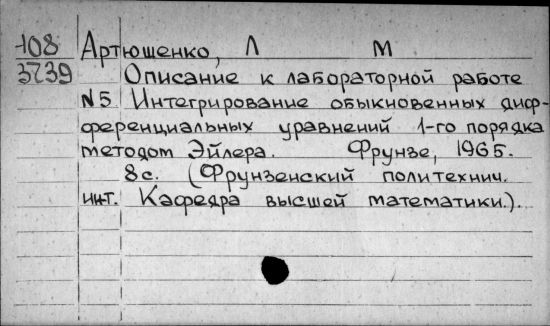 108 Артюшенко, Л М
3239 Описание к лабораторной работе
N5 Интегрирование обыкновенных диф-
ференциальных уравнений 1-го порядка
методом Эйлера. Фрунзе, 1965.
8с. (Фрунзенский политехнич.
инт. Кафедра высшей математики.).